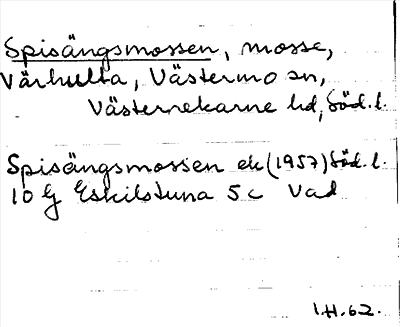 Spisängsmossen, mosse,
Värhulta, Västermo sn,
Västerrekarne hd, Söd. l.
Spisängsmossen ek (1957) Söd. l.
10 G Eskilstuna 5 c Vad
I.H. 62.